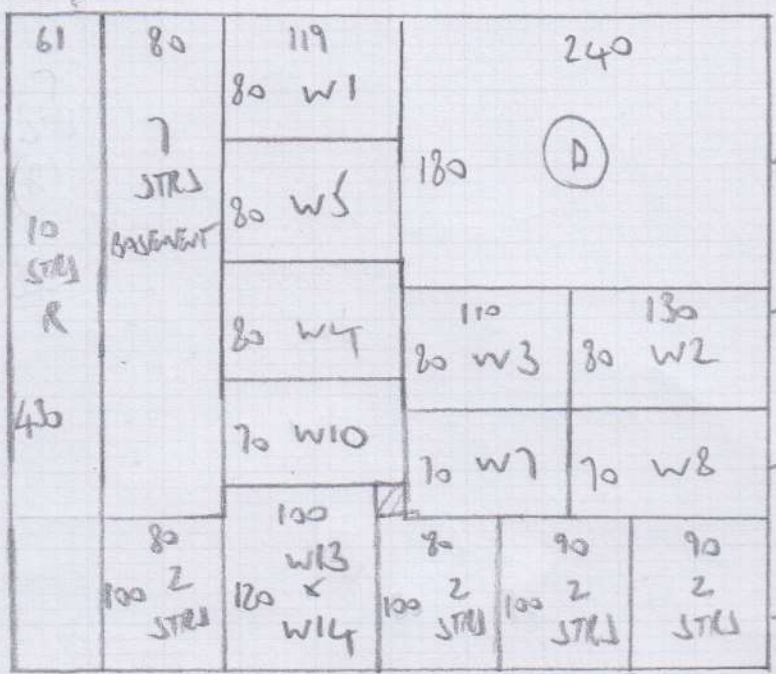 61
10
STRS
R
430
80
7
STRS
BASEMENT
119
80 W1
80 W5
80 W4
70 W10
240
180
D
110
80 W3
130
80 W2
70 W7
70 W8
80
100 2
STRS
100
W13
×
120
W14
80
100 2
STRS
90
100 2
STRS
90
2
STRS